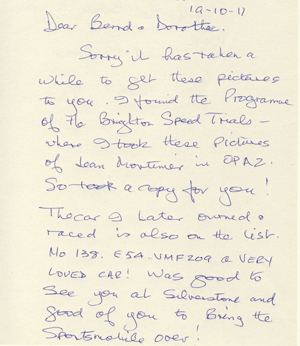 19-10-11
Dear Bernd & Dorothee.
Sorry it has taken a
while to get these pictures
to you. I found the Programme
of The Brighton Speed Trials -
where I took these pictures
of Jean Mortimer in OPA2.
So took a copy for you!
The car I later owned &
raced is also on the list.
No 138. E5A. VMF209 a VERY
LOVED CAR! Was good to
see you at Silverstone and
good of you to Bring the
Sportsmobile over!